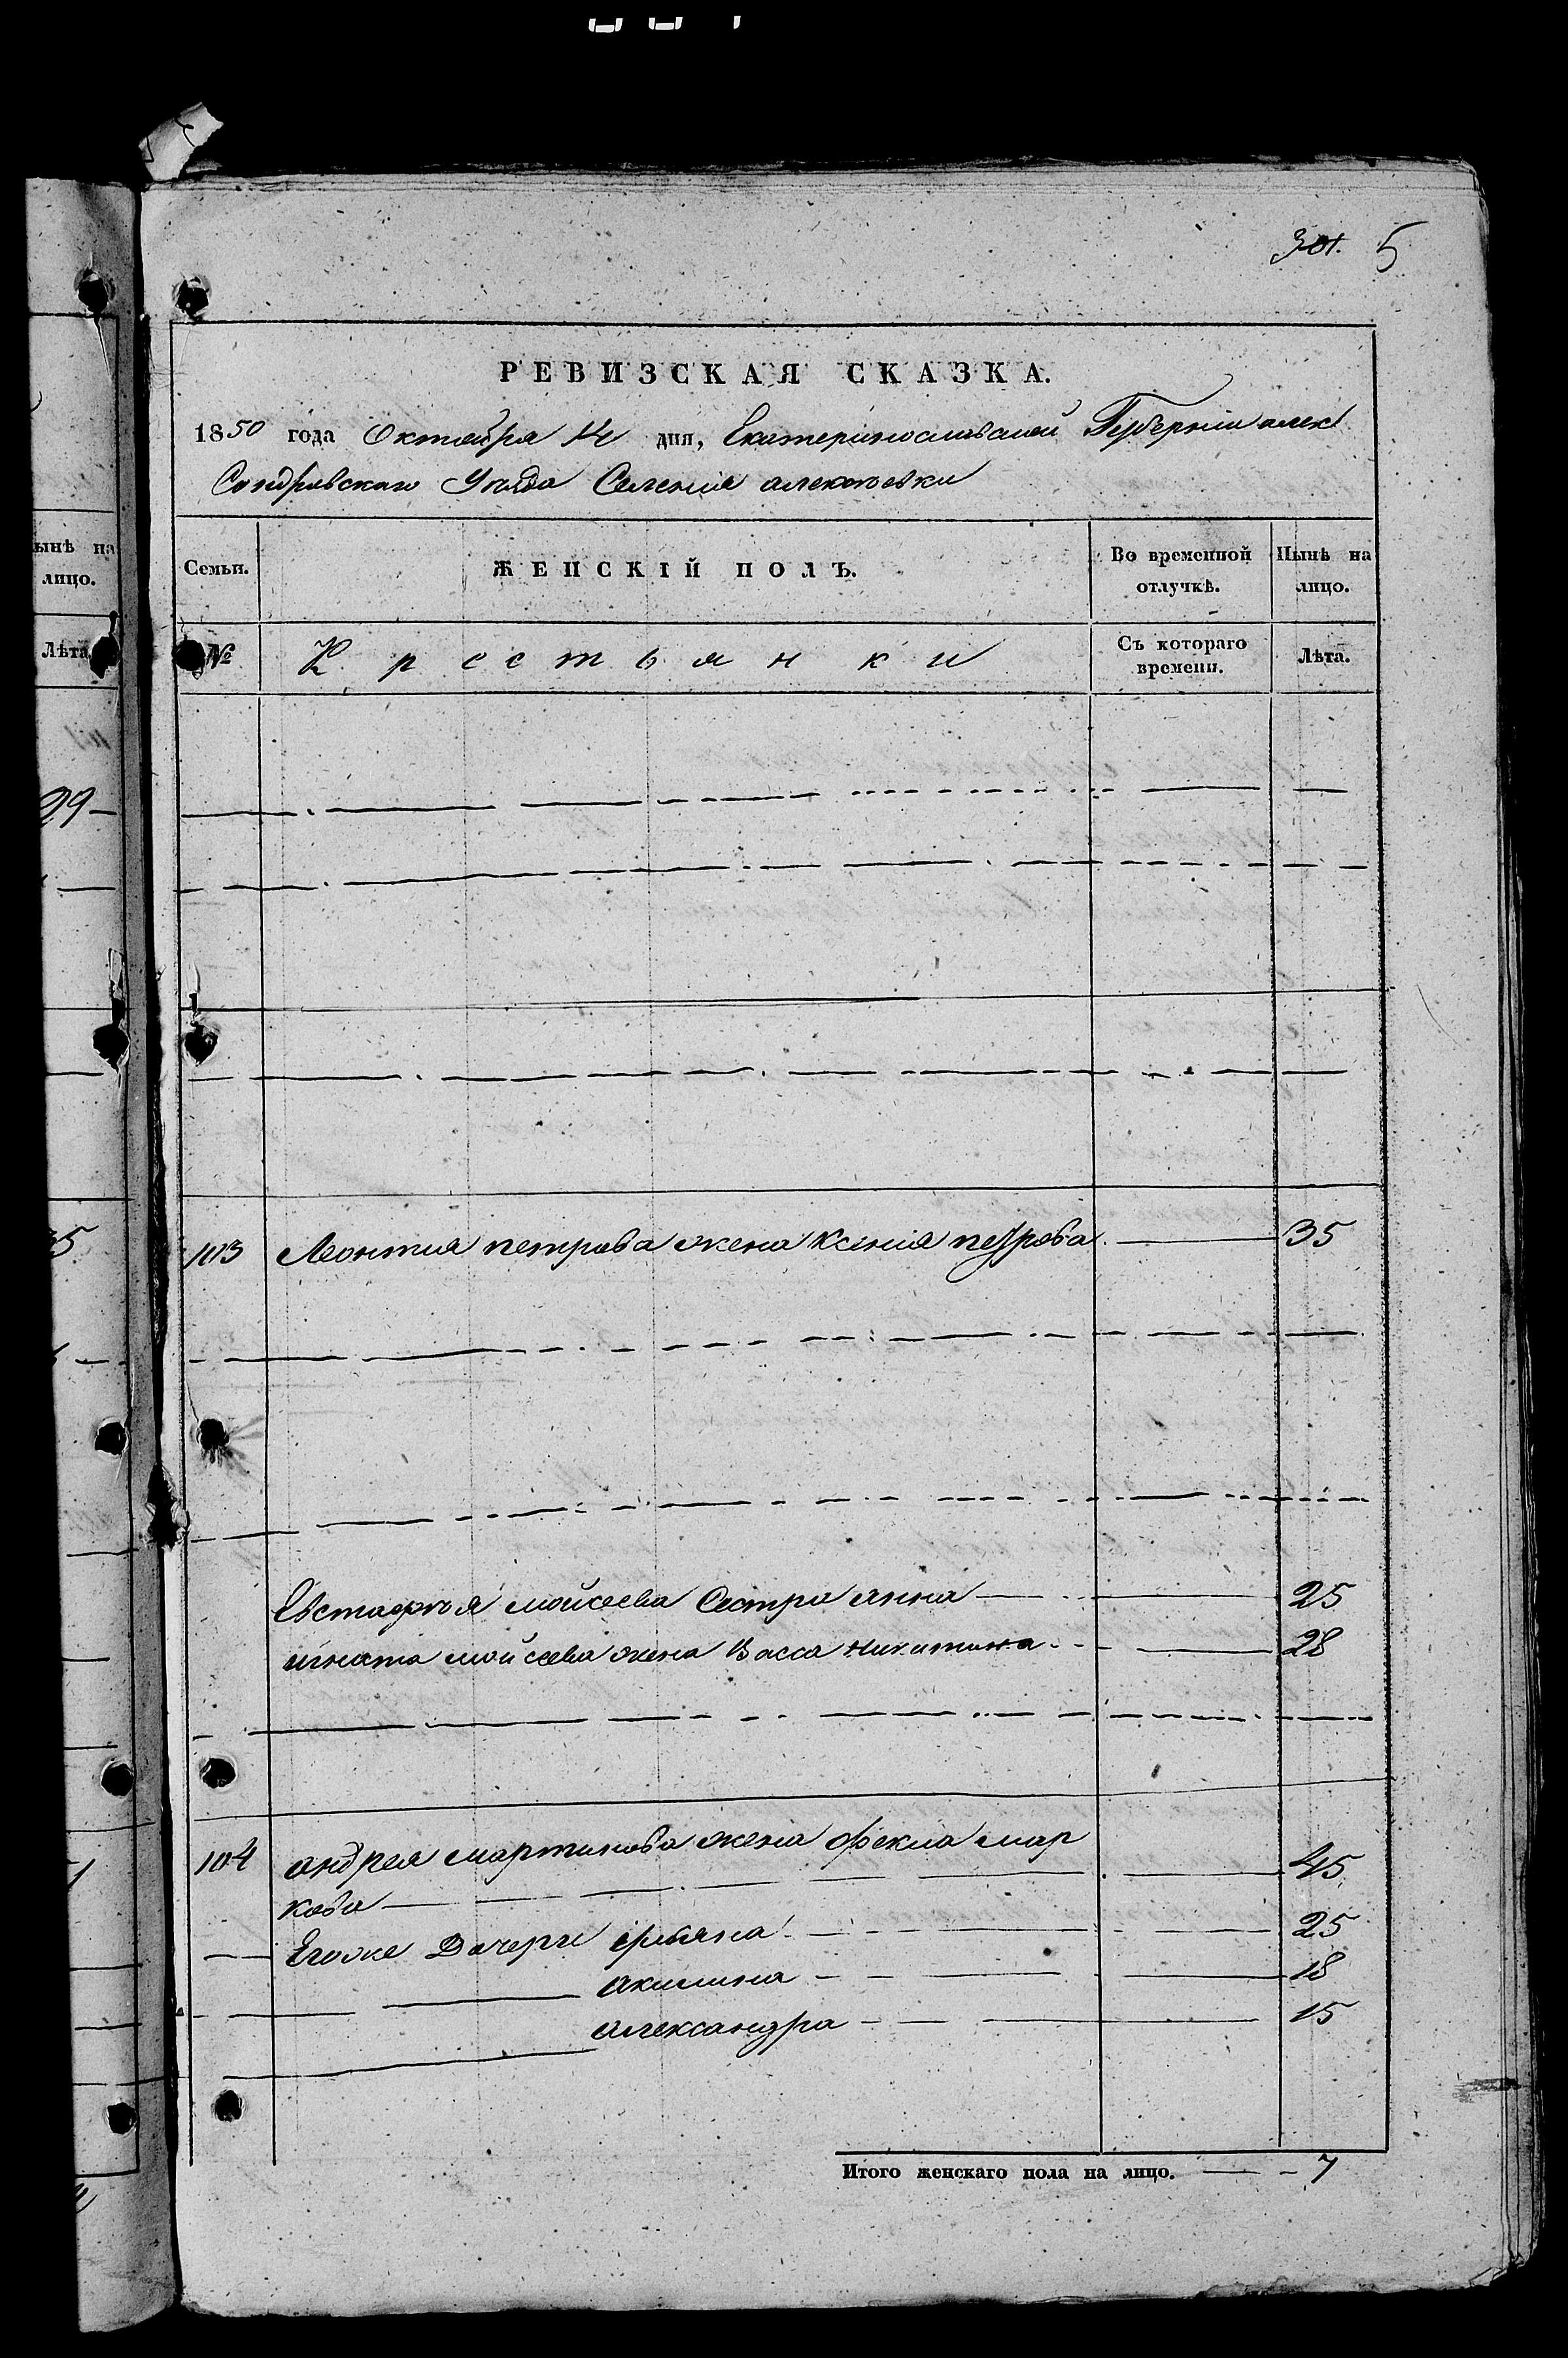 301. 5
РЕВИЗСКАЯ СКАЗКА.
1850 года Октября 14 дня, Екатеринославской Губернии алек
Сандровскаго Уезда Селения алексеевки
ынѣ на
лицо.
Лѣта
29
35
Семьи. ЖЕНСКІЙ ПОЛЪ. Во временной отлучкѣ. Нынѣ на лицо.
№ Крестьянки Съ котораго времени. Лѣта.
103 Леонтия петрова жена Ксения петрова 35
Евстафья мойсеева Сестра анна 25
игната мойсеева жена Васса никитина 28
104 андрея мартинова жена Фекла мар
кова 45
Егоже Дочери 25
акилина 18
александра 15
Итого женскаго пола на лицо. 7